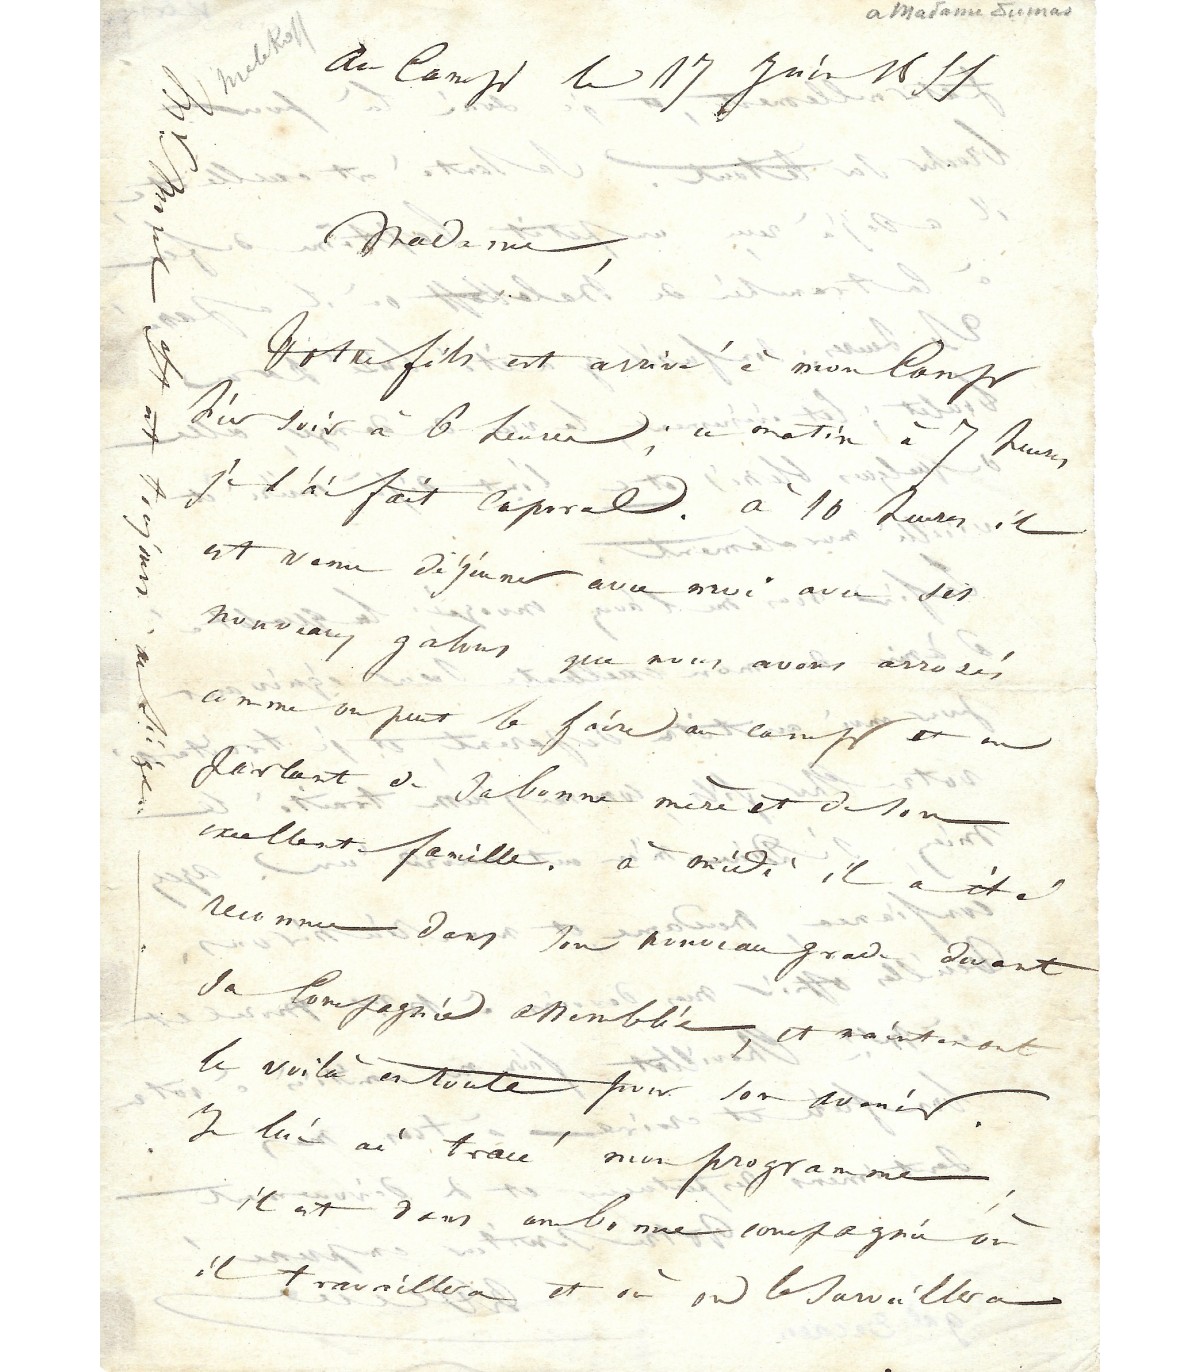 a Madame Dumas
Au Camp le 17 Juin 1855
Madame,
Votre fils est arrivé à mon Camp
hier soir à 6 heures ; ce matin à 7 heures
je l'ai fait caporal. à 10 heures il
est venu déjeuner avec moi avec ses
nouveaux galons que nous avons arrosés
comme on peut le faire au camp et en
parlant de sa bonne mère et de son
excellente famille. à midi il a été
reconnu dans son nouveau grade devant
sa Compagnie assemblée, et maintenant
le voilà en route pour son avenir.
Je lui ai tracé mon programme,
il est dans une bonne compagnie où
il travaillera et où on le surveillera
est toujours